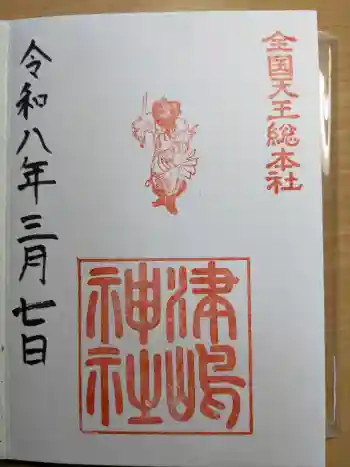 全国天王総本社
津嶋
神社
令和八年三月七日